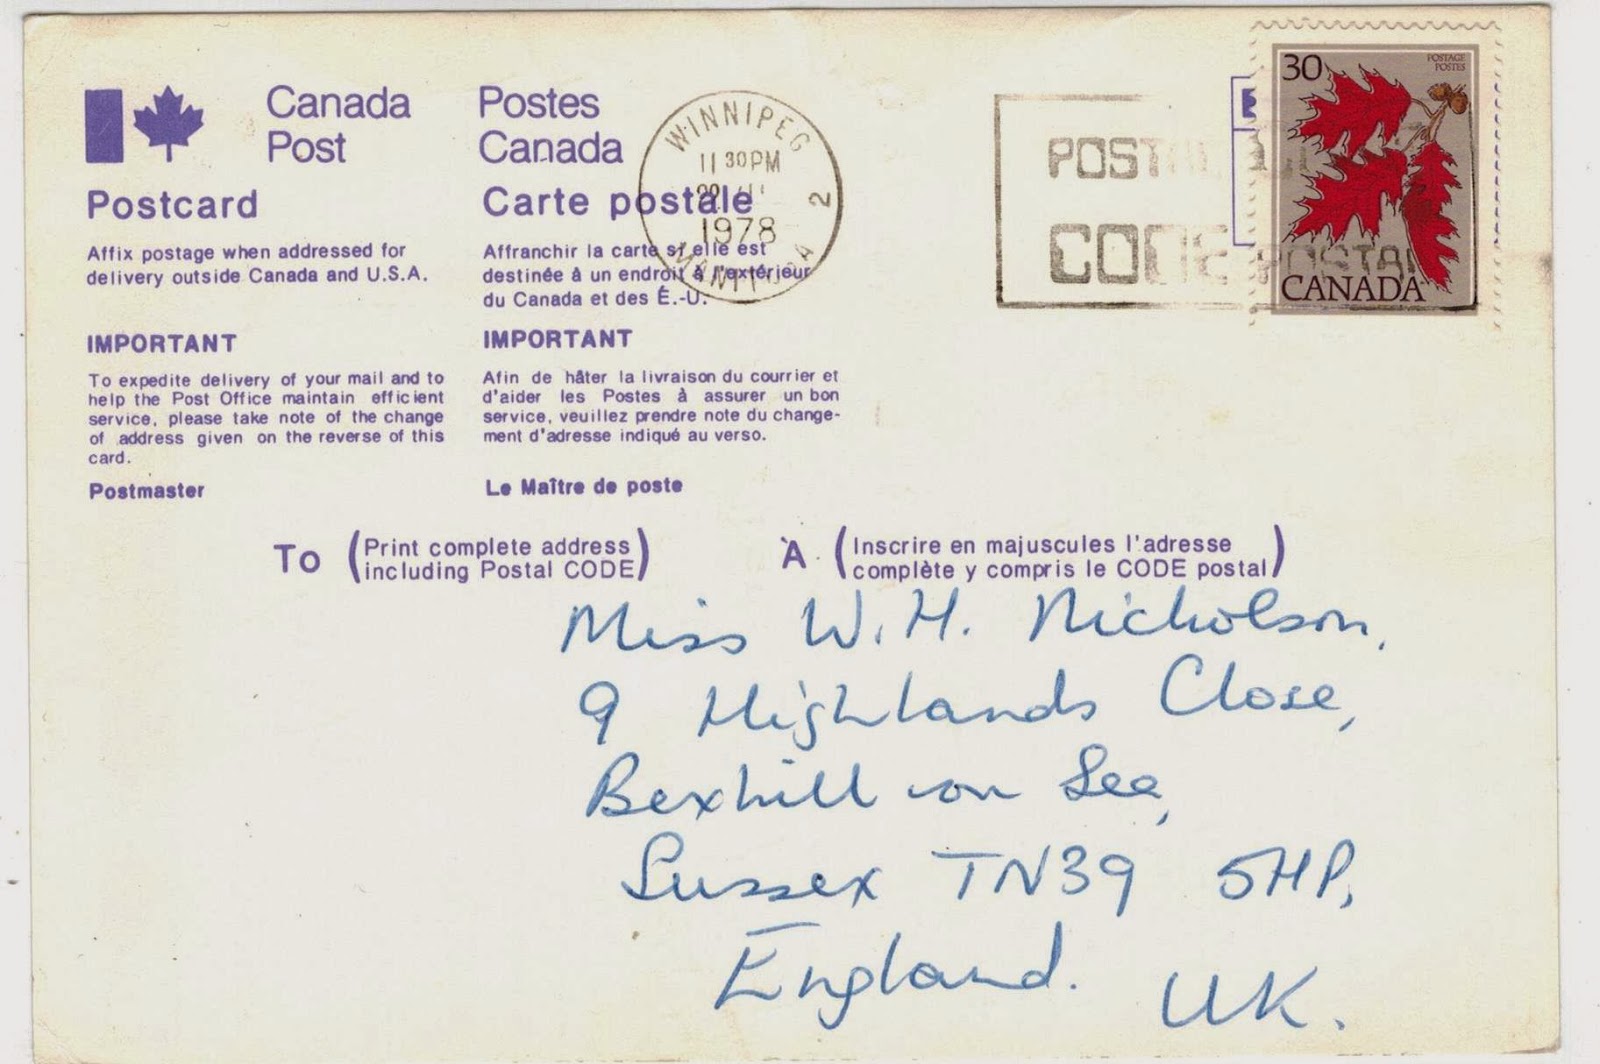 Canada
Post
Postes
Canada
Postcard
Carte postale
Affix postage when addressed for
delivery outside Canada and U.S.A.
Affranchir la carte si elle est
destinée à un endroit à l'extérieur
du Canada et des É.-U.
IMPORTANT
To expedite delivery of your mail and to
help the Post Office maintain efficient
service, please take note of the change
of address given on the reverse of this
card.
Postmaster
IMPORTANT
Afin de hâter la livraison du courrier et
d'aider les Postes à assurer un bon
service, veuillez prendre note du change-
ment d'adresse indiqué au verso.
Le Maître de poste
WINNIPEG
11 30PM
1978
2
MANITOBA
POSTAL
CODE POSTAL
30
POSTAGE
POSTES
CANADA
To (Print complete address
including Postal CODE)
À (Inscrire en majuscules l'adresse
complète y compris le CODE postal)
Miss W. H. Nicholson,
9 Highlands Close,
Bexhill on Sea,
Sussex TN39 5HP,
England.
UK.